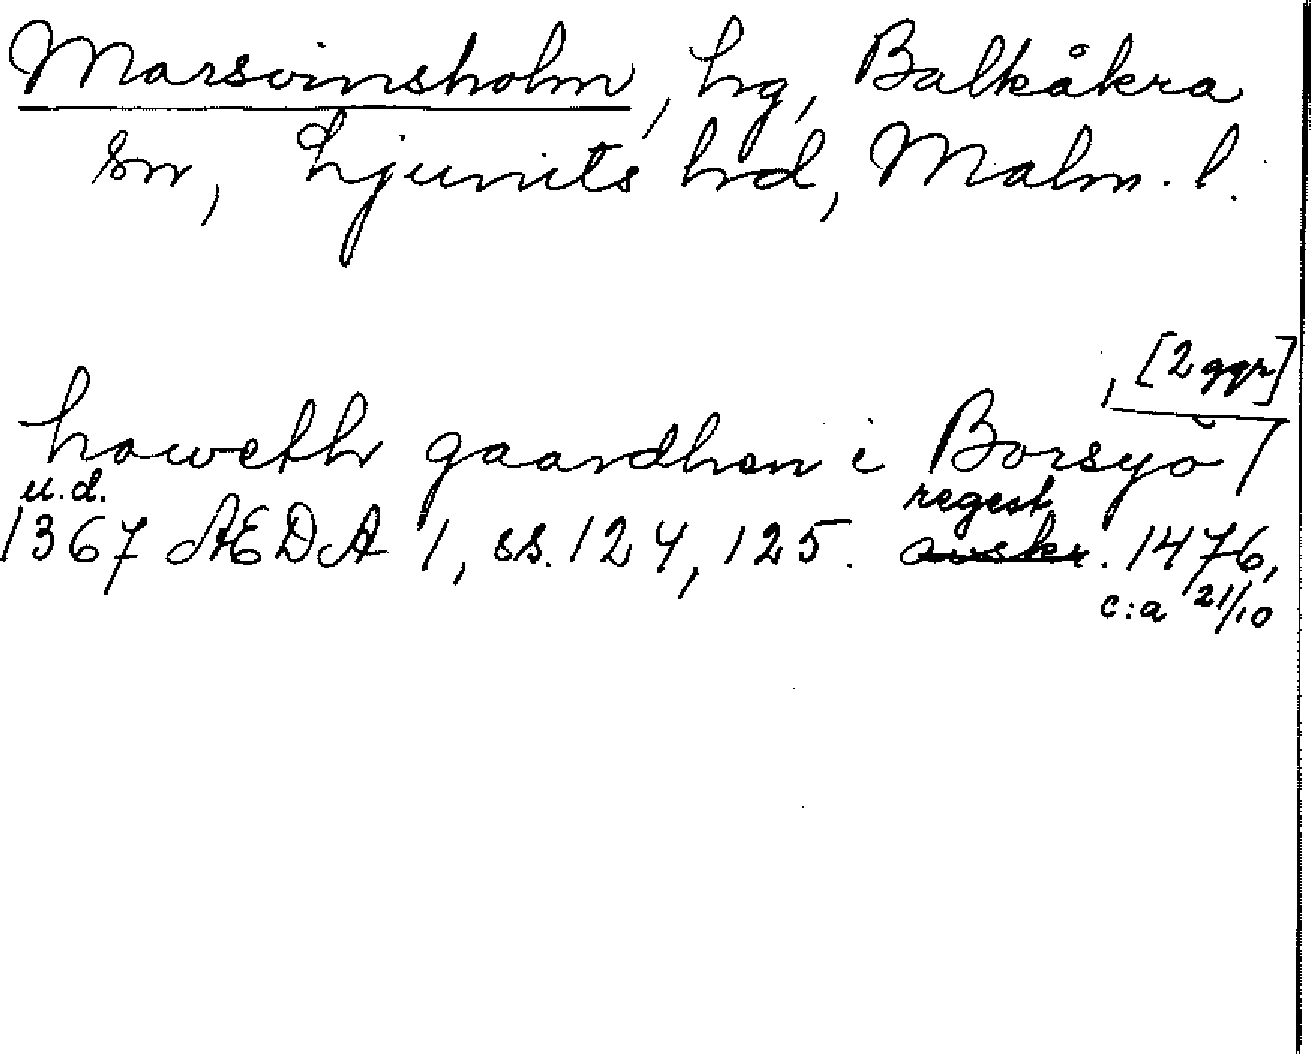 Marsvinsholm, hg, Balkåkra
sn, Ljunits hrd, Malm. l.
, [2 ggr]
howeth gaardhen i Borsyö
u.d. regest
1367 AEDA 1, ss. 124, 125. avskr. 1476,
c:a 21/10